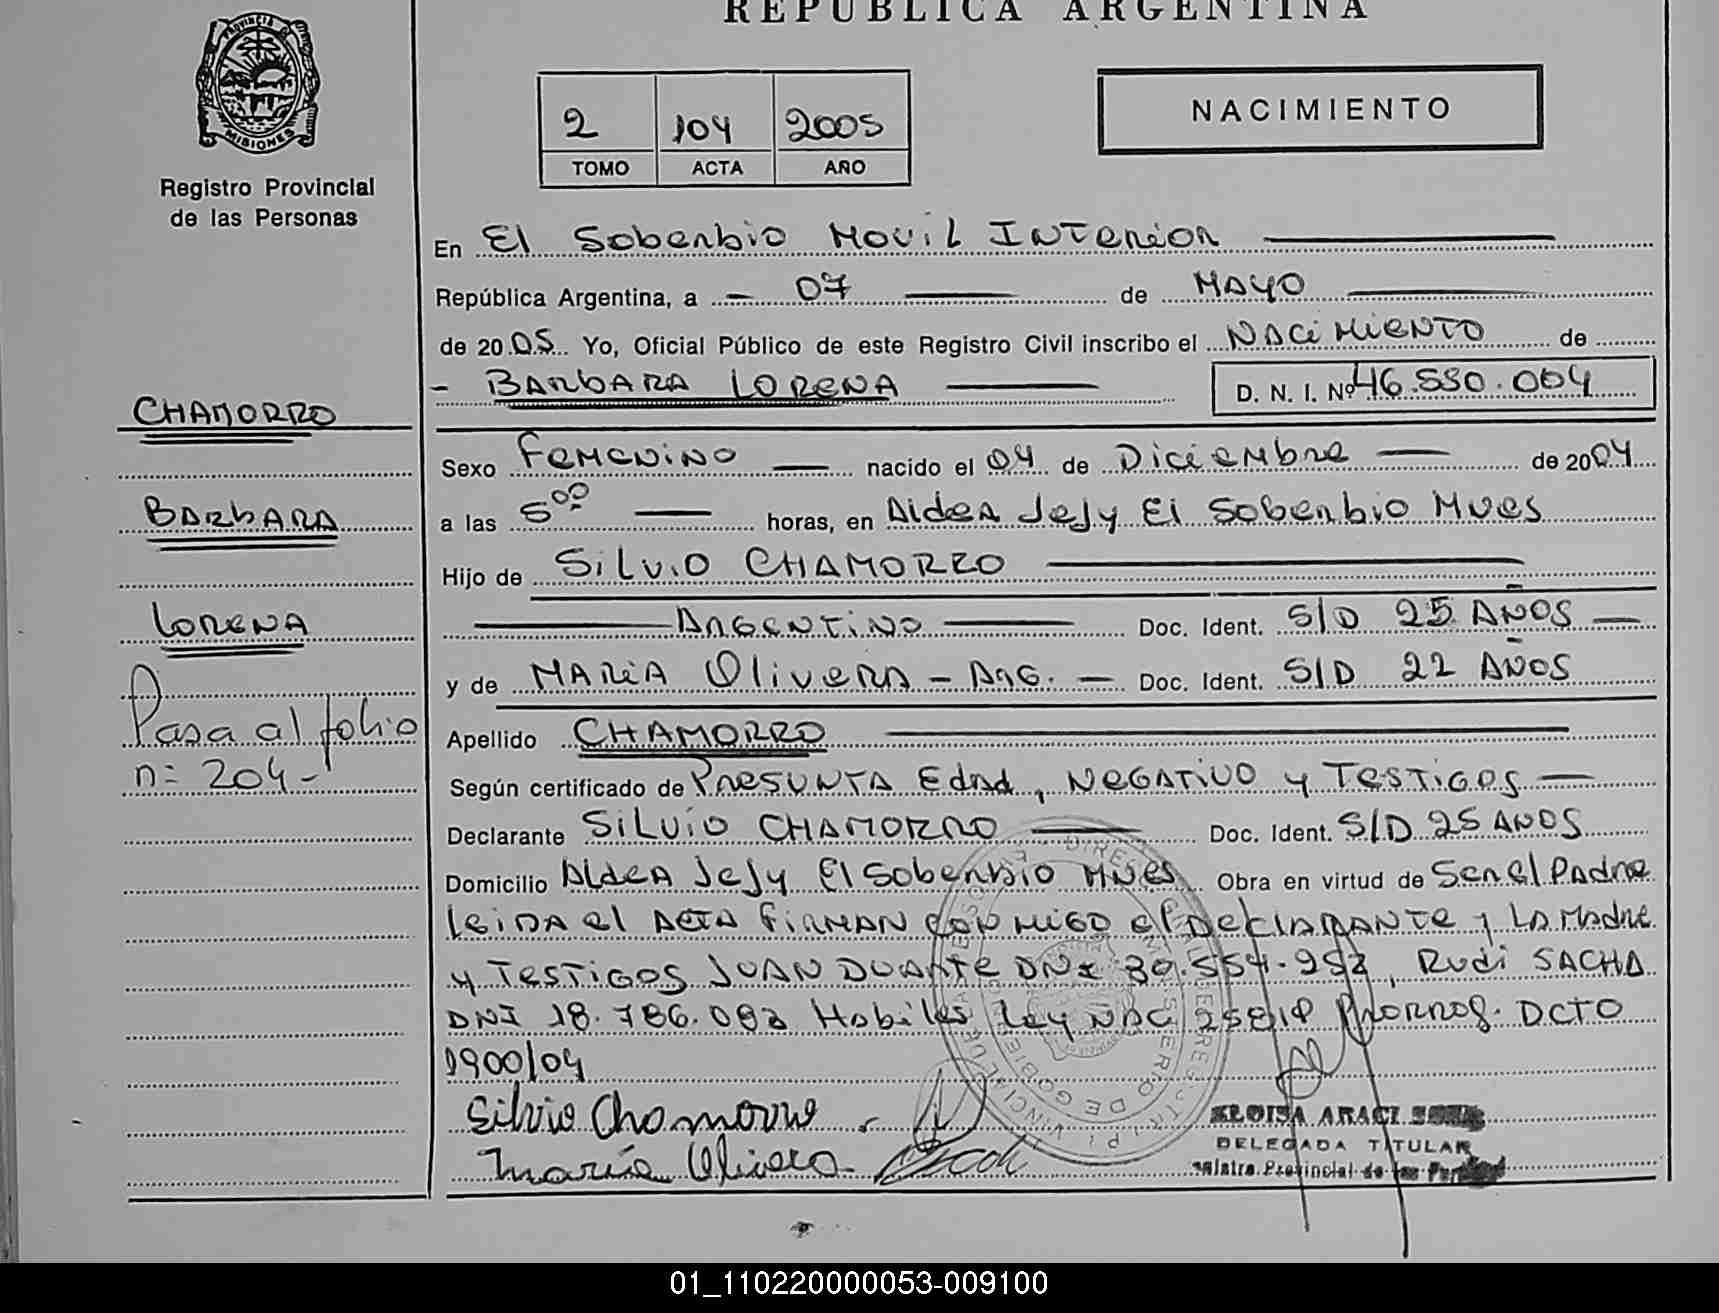 REPUBLICA ARGENTINA
PROVINCIA DE MISIONES
Registro Provincial
de las Personas
2 104 2005
TOMO ACTA AÑO
NACIMIENTO
En El Soberbio Movil Interior
República Argentina, a - 07 de Mayo
de 2005 Yo, Oficial Público de este Registro Civil inscribo el Nacimiento de
- BARBARA LORENA D. N. I. Nº 46.530.064
CHAMORRO
BARBARA
LORENA
Pasa al folio
n= 204-
Sexo Femenino nacido el 04 de Diciembre de 2004
a las 5⁰⁰ horas, en Aldea Jejy El Soberbio Mnes
Hijo de Silvio CHAMORRO
Argentino Doc. Ident. S/D 25 AÑOS
y de MARIA Olivera - Arg. - Doc. Ident. S/D 22 AÑOS
Apellido CHAMORRO
Según certificado de Presunta Edad, Negativo y Testigos
Declarante Silvio CHAMORRO Doc. Ident. S/D 25 ANOS
Domicilio Aldea Jejy El Soberbio Mnes Obra en virtud de Ser el Padre
leida el acta firman conmigo el Declarante y La Madre
y Testigos Juan Duarte DNI 30.554.253, Rudi SACHA
DNI 18.786.083 Habiles Ley Nac 25819 Prorrog. DCTO
1900/04
Silvio Chamorro
María Olivera
ELOISA ARACI
DELEGADA TITULAR
Provincial de las
01_110220000053-009100